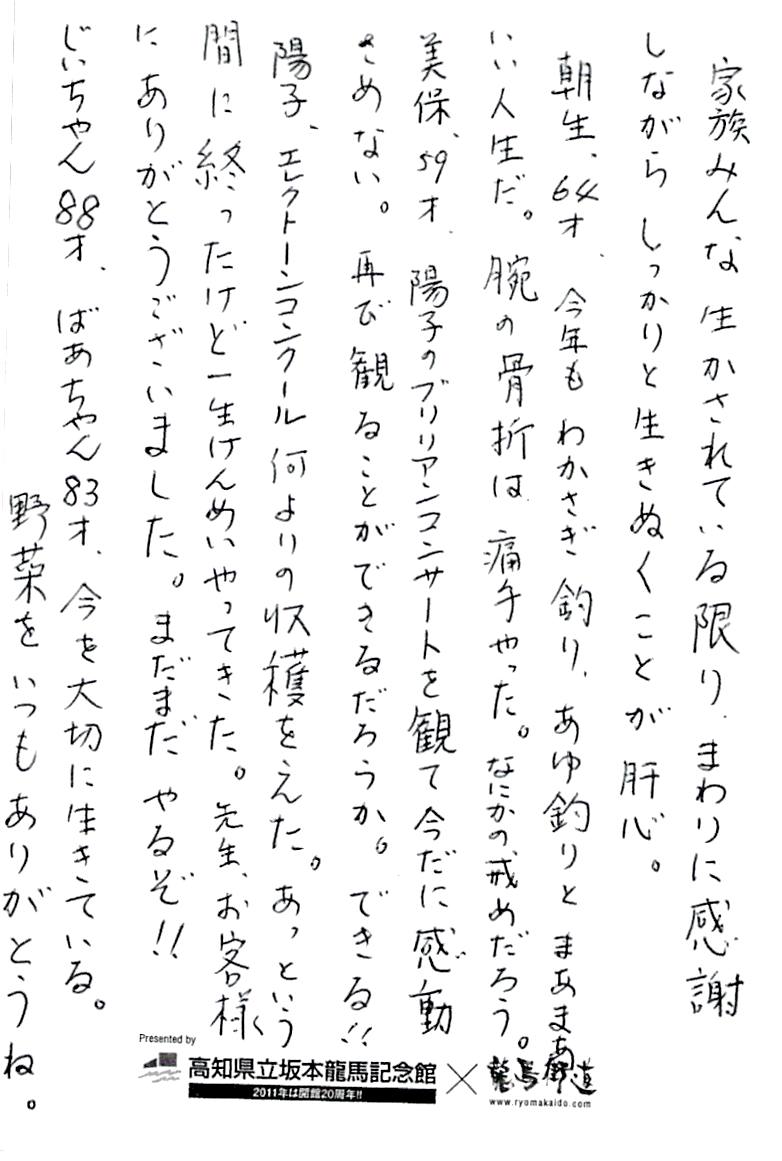 家族みんな生かされている限り、まわりに感謝
しながらしっかりと生きぬくことが肝心。
朝生、64才、今年もわかさぎ釣り、あゆ釣りとまあまあ
いい人生だ。腕の骨折は痛手やった。なにかの戒めだろう。
美保、59才、陽子のブリリアンコンサートを観て今だに感動
さめない。再び観ることができるだろうか。できる!!
陽子、エレクトーンコンクール何よりの収穫をえた。あっという
間に終ったけど一生けんめいやってきた。先生、お客様
にありがとうございました。まだまだやるぞ!!
じいちゃん88才、ばあちゃん83才、今を大切に生きている。
野菜をいつもありがとうね。
Presented by
高知県立坂本龍馬記念館 × 龍馬街道
2011年は開館20周年!!
www.ryomakaido.com